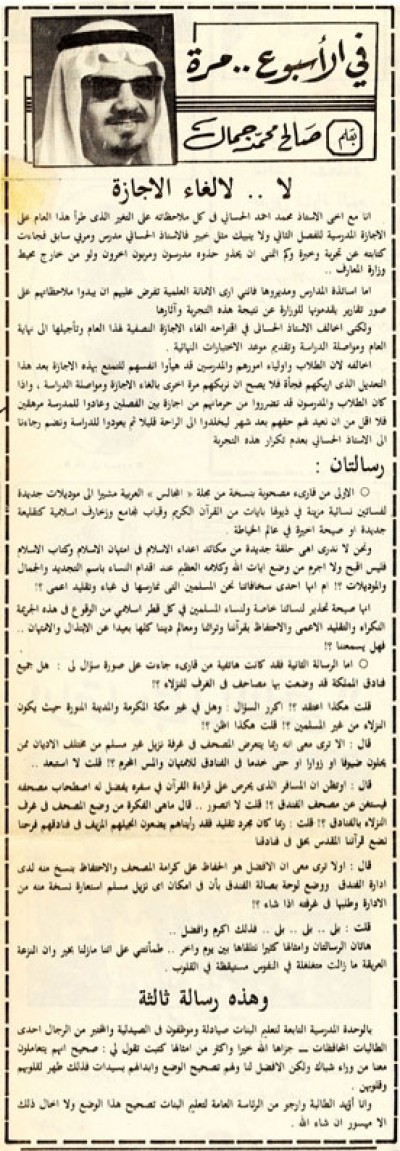 في الأسبوع .. مرة
بقلم
صالح محمد جمال
لا .. لالغاء الاجازة
انا مع اخى الاستاذ محمد احمد الحساني فى كل ملاحظاته على التغير الذى طرأ هذا العام على
الاجازة المدرسية للفصل الثاني ولا ينبيك مثل خبير فالاستاذ الحساني مدرس ومربي سابق فجاءت
كتابته عن تجربة وخبرة وكم اتمنى ان يحذو حذوه مدرسون ومربون اخرون ولو من خارج محيط
وزارة المعارف ..
اما اساتذة المدارس ومديروها فانني ارى الامانة العلمية تفرض عليهم ان يبدوا ملاحظاتهم على
صور تقارير يقدمونها للوزارة عن نتيجة هذه التجربة وآثارها
ولكني اخالف الاستاذ الحسانى فى اقتراحه الغاء الاجازة النصفية لهذا العام وتأجيلها الى نهاية
العام ومواصلة الدراسة وتقديم موعد الاختبارات النهائية .
اخالفه لان الطلاب واولياء امورهم والمدرسين قد هيأوا انفسهم للتمتع بهذه الاجازة بعد هذا
التعديل الذى اربكهم فجأة فلا يصح ان نربكهم مرة اخرى بالغاء الاجازة ومواصلة الدراسة ، واذا
كان الطلاب والمدرسون قد تضرروا من حرمانهم من اجازة بين الفصلين وعادوا للمدرسة مرهقين
فلا اقل من ان نعيد لهم حقهم بعد شهر ليخلدوا الى الراحة قليلا ثم يعودوا للدراسة ونضم رجاءنا
الى الاستاذ الحساني بعدم تكرار هذه التجربة
رسالتان :
○ الاولى من قارىء مصحوبة بنسخة من مجلة « المجالس » العربية مشيرا الى موديلات جديدة
لفساتين نسائية مزينة فى ذيولها بايات من القرآن الكريم وقباب لمجامع وزخارف اسلامية كتقليعة
جديدة او صيحة اخيرة في عالم الخياطة .
ونحن لا ندرى اهى حلقة جديدة من مكائد اعداء الاسلام فى امتهان الاسلام وكتاب الاسلام
فليس اقبح ولا اجرم من وضع ايات الله وكلامه العظيم عند اقدام النساء باسم التجديد والجمال
والموديلات ؟! ام انها احدى سخافاتنا نحن المسلمين التى نمارسها فى غباء وتقليد اعمى ؟!
انها صيحة تحذير لنسائنا خاصة ولنساء المسلمين في كل قطر اسلامي من الوقوع فى هذه الجريمة
النكراء والتقليد الاعمى والاحتفاظ بقرآننا وتراثنا ومعالم ديننا كلها بعيدا عن الابتذال والامتهان ..
فهل يسمعننا ؟!
○ اما الرسالة الثانية فقد كانت هاتفية من قارىء جاءت على صورة سؤال لى : هل جميع
فنادق المملكة قد وضعت بها مصاحف فى الغرف للنزلاء ؟!
قلت هكذا اعتقد ؟! اكرر السؤال : وهل في غير مكة المكرمة والمدينة المنورة حيث يكون
النزلاء من غير المسلمين ؟! قلت هكذا اظن ؟!
قال : الا ترى معى انه ربما يتعرض المصحف فى غرفة نزيل غير مسلم من مختلف الاديان ممن
يحلون ضيوفا او زوارا او حتى خدما فى الفنادق للامتهان والمس المحرم ؟! قلت لا استبعد ..
قال : اوتظن ان المسافر الذى يحرص على قراءة القرآن في سفره يغفل له اصطحاب مصحفه
فيستغن عن مصحف الفندق ؟! قلت لا اتصور .. قال ماهى الفكرة من وضع المصحف فى غرف
النزلاء بالفنادق ؟! قلت : ربما كان مجرد تقليد فقد رأيناهم يضعون انجيلهم المزيف فى فنادقهم فرحنا
نضع قرآننا المقدس بحق فى فنادقنا
قال : اولا ترى معى ان الافضل هو الحفاظ على كرامة المصحف والاحتفاظ بنسخ منه لدى
ادارة الفندق ووضع لوحة بصالة الفندق بأن فى امكان اى نزيل مسلم استعارة نسخة منه من
الادارة وطلبها فى غرفته اذا شاء ؟!
قلت : بلى .. بلى .. بلى .. فذلك اكرم وافضل ..
هاتان الرسالتان وامثالها كثيرا نتلقاها بين يوم واخر .. طمأنتني على اننا مازلنا بخير وان النزعة
العريقة ما زالت متغلغلة في النفوس مستيقظة فى القلوب .
وهذه رسالة ثالثة
بالوحدة المدرسية التابعة لتعليم البنات صيادلة وموظفون فى الصيدلية والمختبر من الرجال احدى
الطالبات المحافظات ــ جزاها الله خيرا واكثر من امثالها كتبت تقول لي : صحيح انهم يتعاملون
معنا من وراء شباك ولكن الافضل لنا ولهم تصحيح الوضع وابدالهم بسيدات فذلك اطهر لقلوبهم
وقلوبهن .
وانا اؤيد الطالبة وارجو من الرئاسة العامة لتعليم البنات تصحيح هذا الوضع ولا اخال ذلك
الا ميسور ان شاء الله .